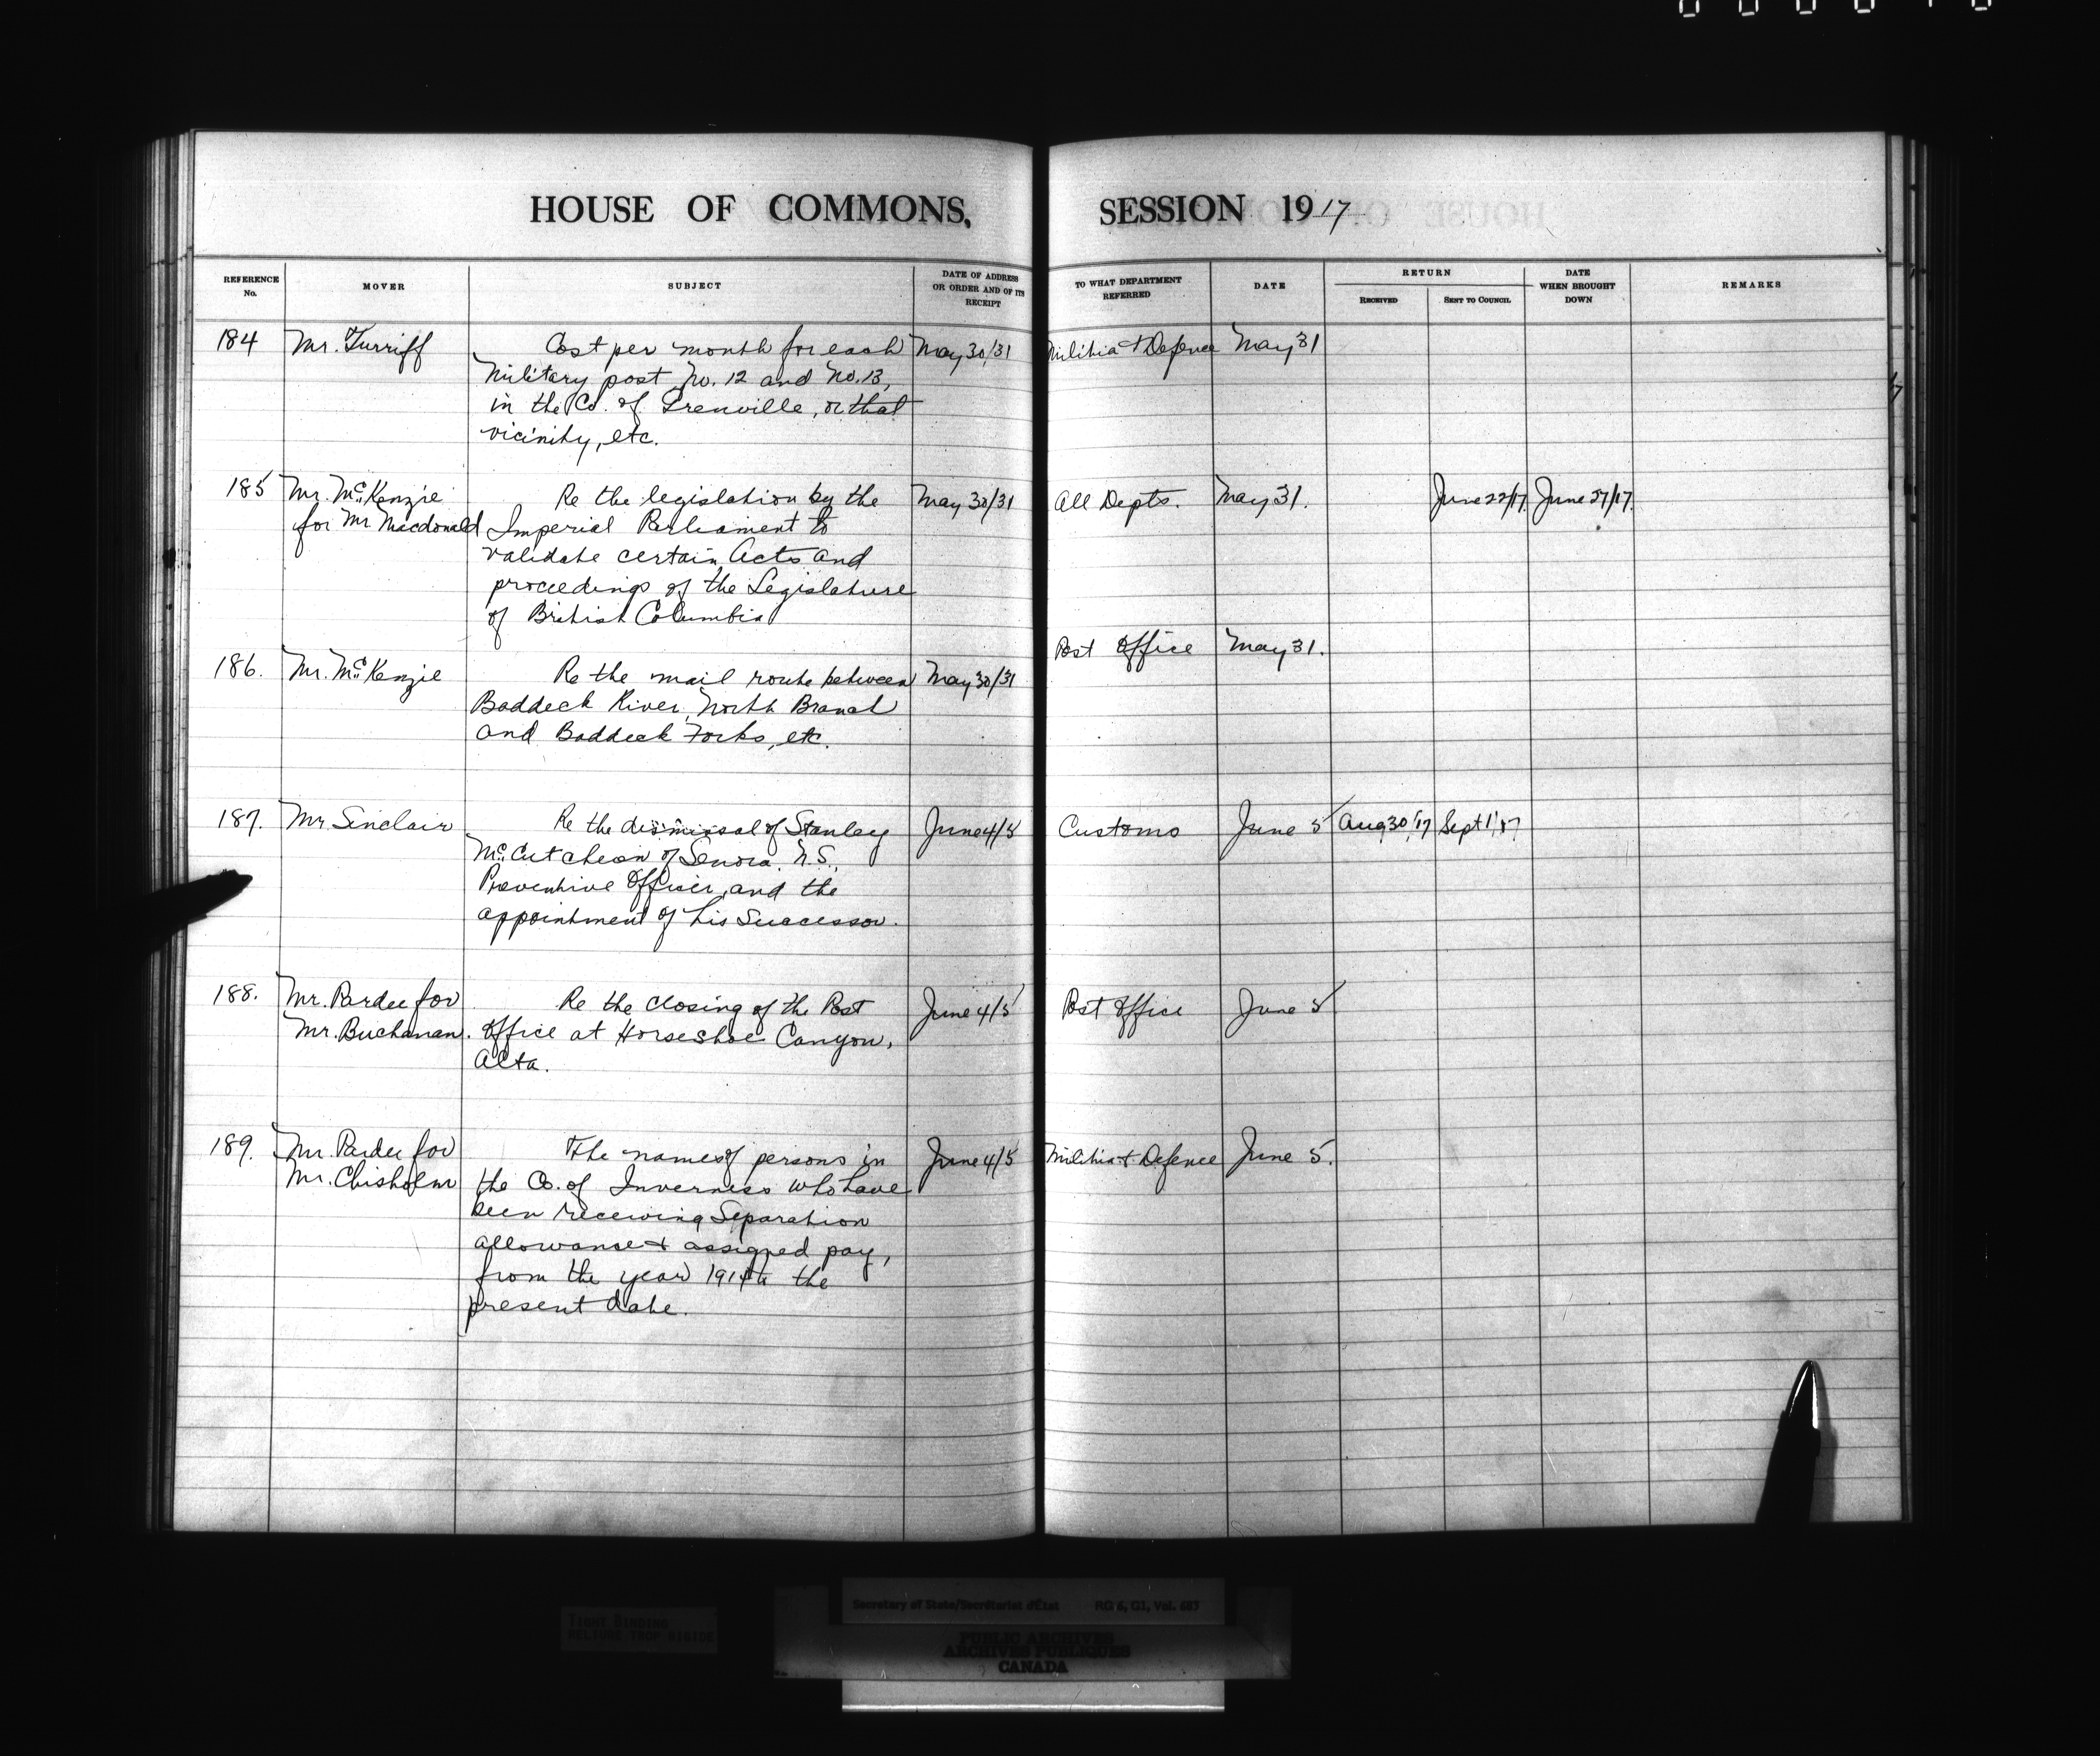 HOUSE OF COMMONS, SESSION 1917
REFERENCE No. MOVER SUBJECT DATE OF ADDRESS OR ORDER AND OF ITS RECEIPT TO WHAT DEPARTMENT REFERRED DATE RETURN RECEIVED SENT TO COUNCIL DATE WHEN BROUGHT DOWN REMARKS
184 Mr. Turriff Cost per month for each May 30/31 Militia & Defence May 31
Military post, No. 12 and No. 13,
in the Co. of Grenville, or that
vicinity, etc.
185 Mr. McKenzie Re the legislation by the May 30/31 All Depts. May 31. June 22/17. June 27/17.
for Mr Macdonald Imperial Parliament to
validate certain Acts and
proceedings of the Legislature
of British Columbia
186. Mr. McKenzie Re the mail route between May 30/31 Post Office May 31.
Baddeck River, North Branch
and Baddeck Forks, etc.
187. Mr Sinclair Re the dismissal of Stanley June 4/5 Customs June 5 Aug 30/17 Sept 1/17
McCutcheon of Senora, N.S.,
Preventive Officer, and the
appointment of his Successor.
188. Mr. Pardee for Re the closing of the Post June 4/5 Post Office June 5
Mr. Buchanan. Office at Horseshoe Canyon,
Alta.
189. Mr. Pardee for The names of persons in June 4/5 Militia & Defence June 5.
Mr. Chisholm the Co. of Inverness who have
been receiving Separation
allowance & assigned pay,
from the year 1914 to the
present date.
TIGHT BINDING
RELIURE TROP RIGIDE
Secretary of State/Secrétariat d'État RG 6, G1, Vol. 683
PUBLIC ARCHIVES
ARCHIVES PUBLIQUES
CANADA